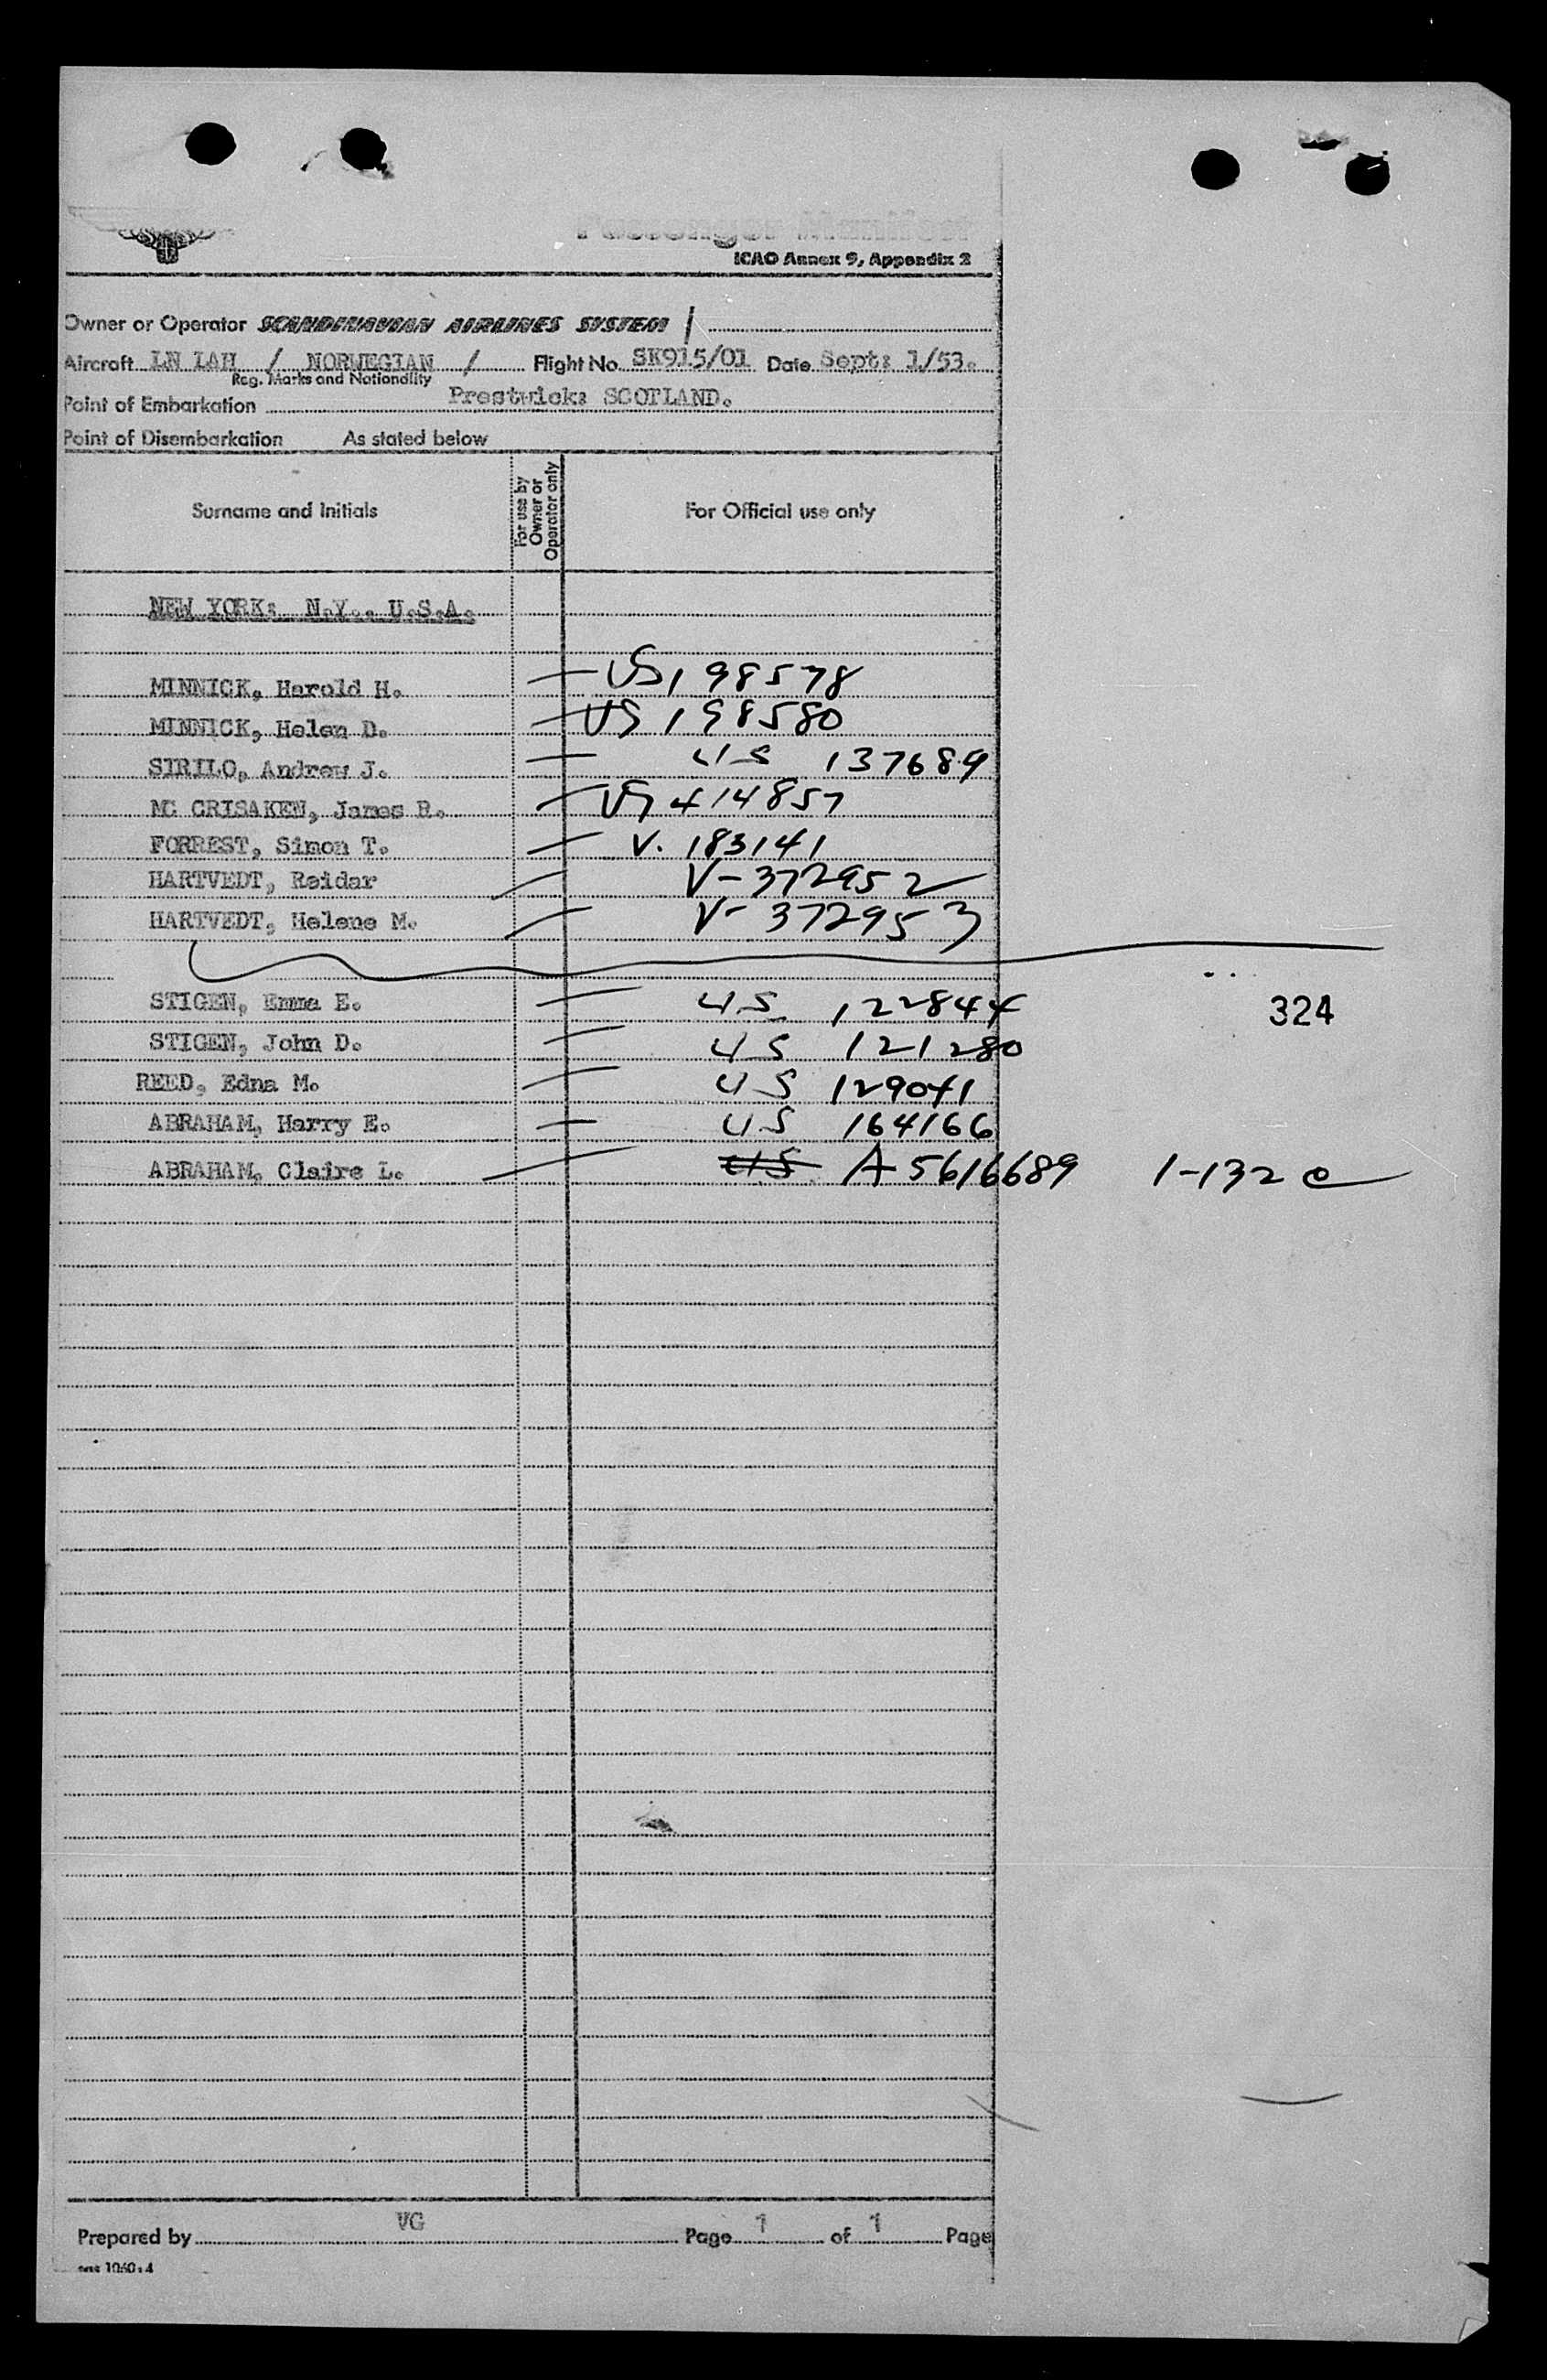 Passenger Manifest
ICAO Annex 9, Appendix 2
Owner or Operator SCANDINAVIAN AIRLINES SYSTEM /
Aircraft LN LAH / NORWEGIAN / Flight No SK915/01 Date Sept: 1/53.
Reg. Marks and Nationality
Point of Embarkation Prestwick: SCOTLAND.
Point of Disembarkation As stated below
Surname and Initials For use by Owner or Operator only For Official use only
NEW YORK: N.Y.. U.S.A.
MINNICK, Harold H. US 198578
MINNICK, Helen D. US 198580
SIRILO, Andrew J. US 137689
MC CRISAKEN, James R. US 414857
FORREST, Simon T. V. 183141
HARTVEDT, Reidar V-372952
HARTVEDT, Helene M. V-372953
STIGEN, Emma E. US 122844 324
STIGEN, John D. US 121280
REED, Edna M. US 129041
ABRAHAM, Harry E. US 164166
ABRAHAM, Claire L. US A5616689 1-132 c
Prepared by VG Page 1 of 1 Page
1060:4